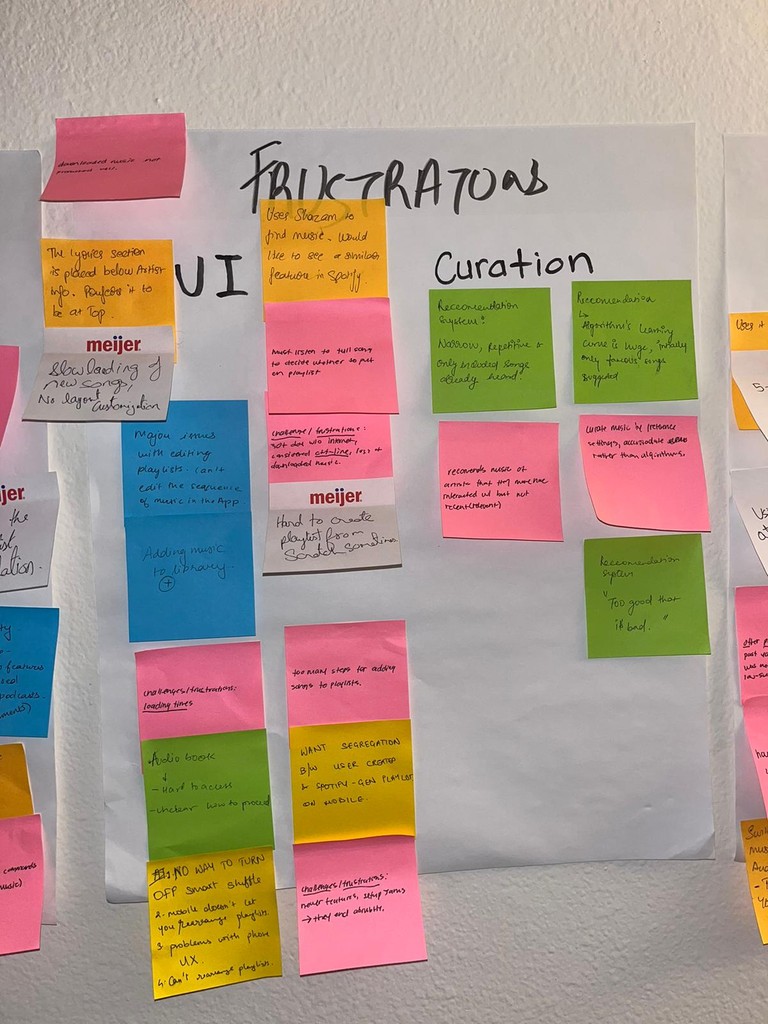 FRUSTRATORS
downloaded music not
UI
Curation
The lyrics section
is placed below Artist
info. Prefers it to
be at Top.
meijer
Slow loading of
new songs,
No layout Customization
Uses Shazam to
find music. Would
like to see a similar
feature in Spotify.
Must listen to full song
to decide whether to put
on playlist
challenge/frustrations:
internet,
considered offline, loss of
downloaded music.
meijer
Hard to create
playlist from
Scratch sometimes
Major issues
with editing
playlists - can't
edit the sequence
of music in the App
Adding music
to library.
+
challenges/frustrations:
loading times
Audio book
↓
- Hard to access
- unclear how to proceed
NO WAY TO TURN
OFF smart shuffle
2. mobile doesn't let
you rearrange playlists
3. problems with phone
UX.
4. Can't rearrange playlists.
too many steps for adding
songs to playlists.
WANT SEGREGATION
B/W USER CREATED
& SPOTIFY-GEN PLAYLIST
ON MOBILE.
challenges/frustrations:
newer features, setup Jams
→ they end
Reccomendation
system:
Narrow, repetitive &
only included songs
already heard!
↳
Algorithm's learning
curve is huge, initially
only famous songs
suggested
recommends music of
artists that
interested
recent(relevant)
Curate music by
settings,
rather than algorithms.
Reccomendation
system
"Too good that
it bad."
jer
the
Uses it
5-